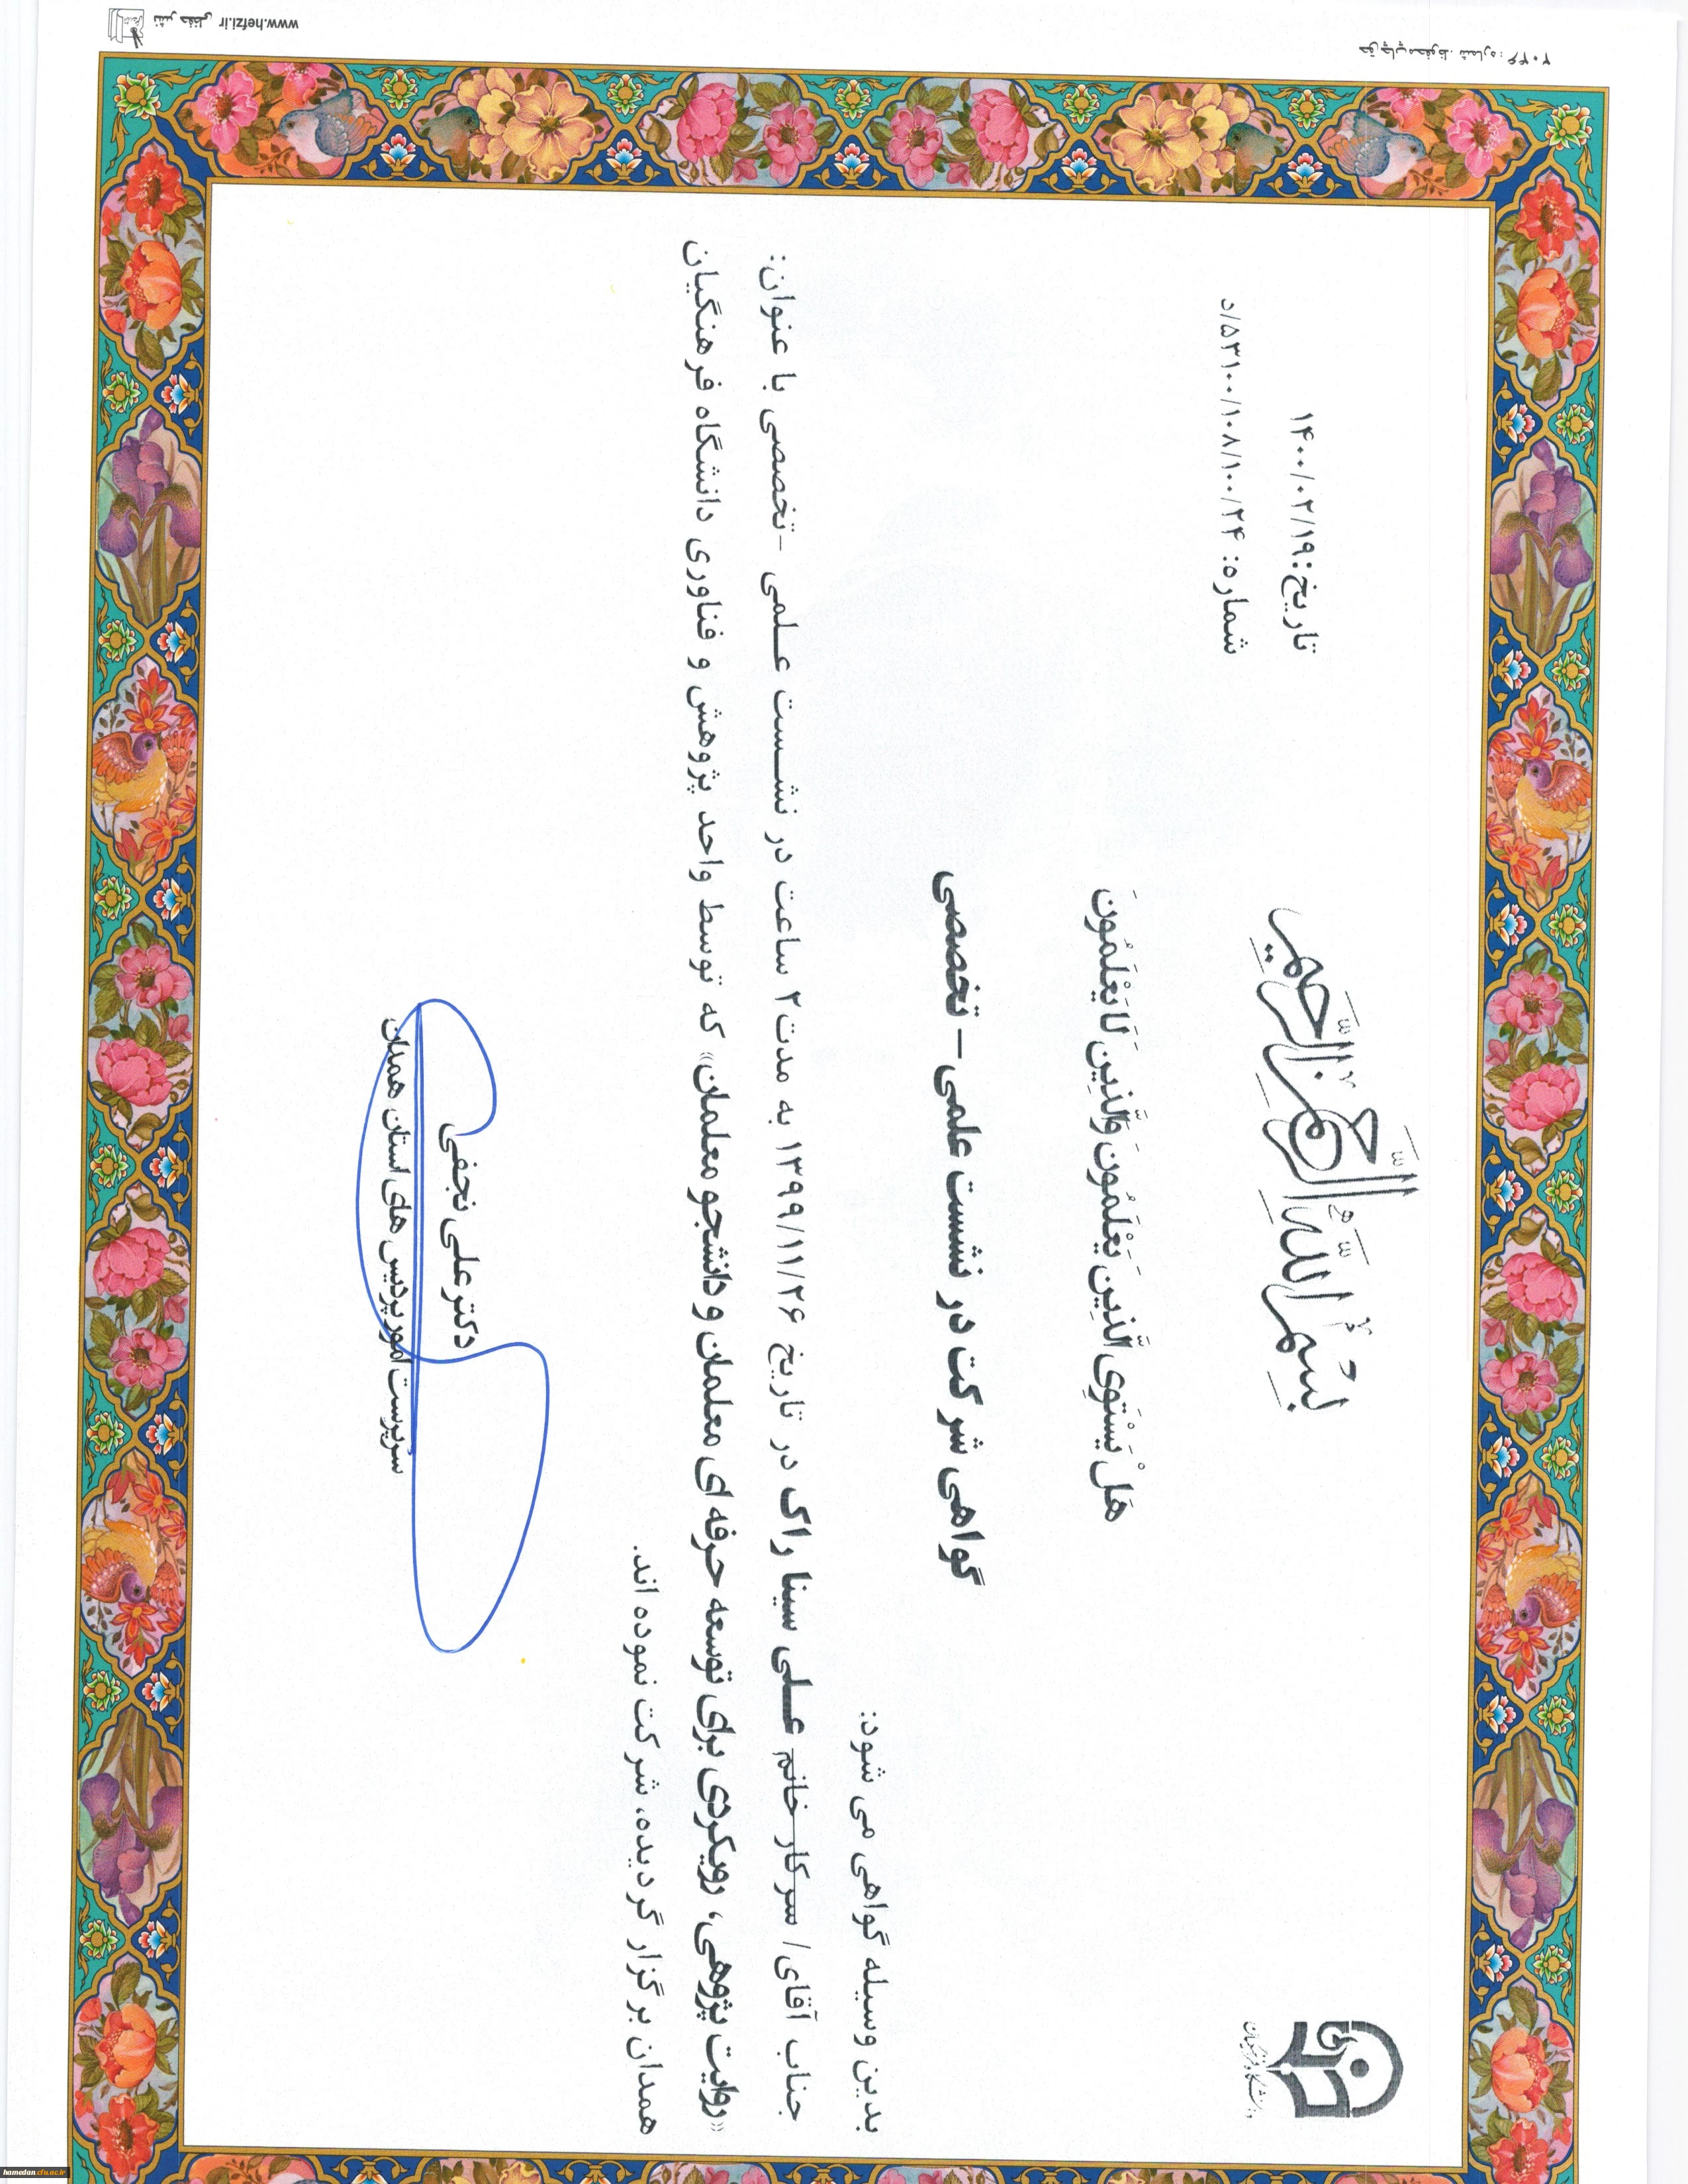 بسم الله الرحمن الرحیم
دانشگاه فرهنگیان
تاریخ: ۱۴۰۰/۰۲/۱۹
شماره: ۵۳۱۰۰/۱۰۸/۱۰۰/۲۴/د
هَلْ يَسْتَوِی الَّذِينَ يَعْلَمُونَ وَالَّذِينَ لَا يَعْلَمُونَ
گواهی شرکت در نشست علمی – تخصصی
بدین وسیله گواهی می شود:
جناب آقای/ سرکار خانم علی سینا راک در تاریخ ۱۳۹۹/۱۱/۲۶ به مدت ۲ ساعت در نشست علمی -تخصصی با عنوان:
«روایت پژوهی، رویکردی برای توسعه حرفه ای معلمان و دانشجو معلمان» که توسط واحد پژوهش و فناوری دانشگاه فرهنگیان
همدان برگزار گردیده، شرکت نموده اند.
دکتر علی نجفی
سرپرست امور پردیس های استان همدان
حق چاپ محفوظ. شماره: ۲۰۴۶
www.hefzi.ir نشر حفظی
hamedan.cfu.ac.ir